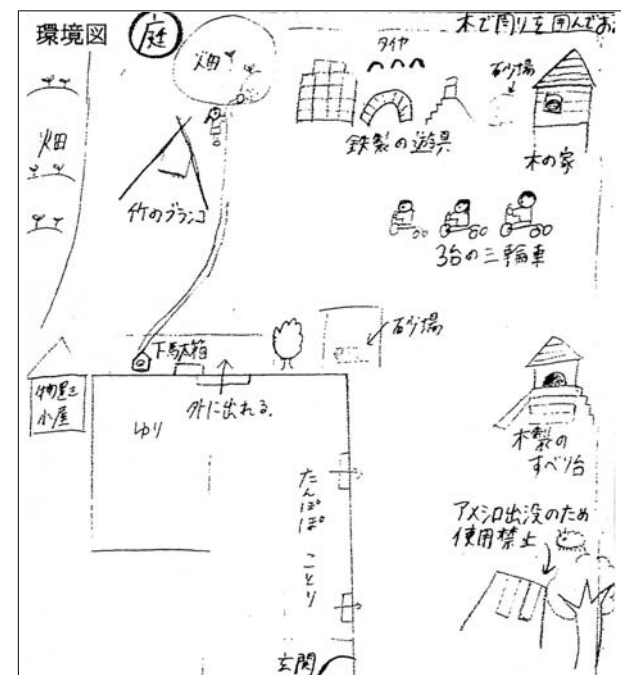 環境図
庭
木で周りを囲んでお
畑
タイヤ
砂場
畑
鉄製の遊具
木の家
竹のブランコ
3台の三輪車
砂場
下駄箱
物置き
小屋
外に出れる。
ゆり
木製の
すべり台
たんぽぽ ことり
アメシロ出没のため
使用禁止
玄関